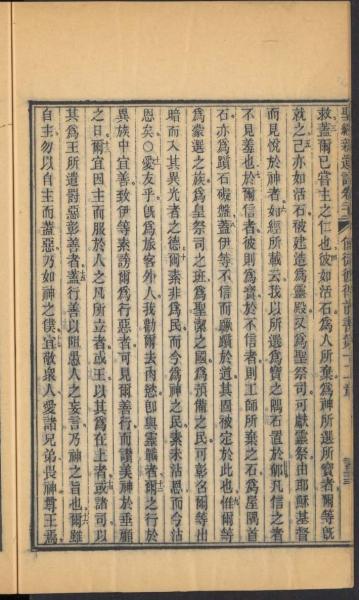 救蓋爾已嘗主之仁也彼如活石爲人所棄爲神所選所寶者爾等旣
就之己亦如活石被建造爲靈殿又爲聖祭司可獻靈祭由耶穌基督
而見悅於神者如經所載云我以所選爲寶之隅石置於郇凡信之者
不見羞也於爾信者彼則爲寶於不信者則工師所棄之石爲屋隅首
石亦爲躓石礙盤蓋伊等不信而躓躓於道其固被定於此也惟爾等
爲蒙選之族爲皇祭司之班爲聖潔之國爲預備之民可彰名爾等出
暗而入其異光者之德爾素非爲民而今爲神之民素未沾恩而今沾
恩矣○愛友乎旣爲旅客外人我勸爾去肉慾卽與靈戰者爾之行於
異族中宜善致伊等素謗爾爲行惡者可見爾善行而讚美神於垂顧
之日爾宜因主而服於人之凡所立者或王以其爲在上者或諸司以
其爲王所遣罰惡彰善者蓋行善以阻愚人之妄言乃神之旨也爾雖
自主勿以自主而蓋惡乃如神之僕宜敬衆人愛諸兄弟畏神尊王爲